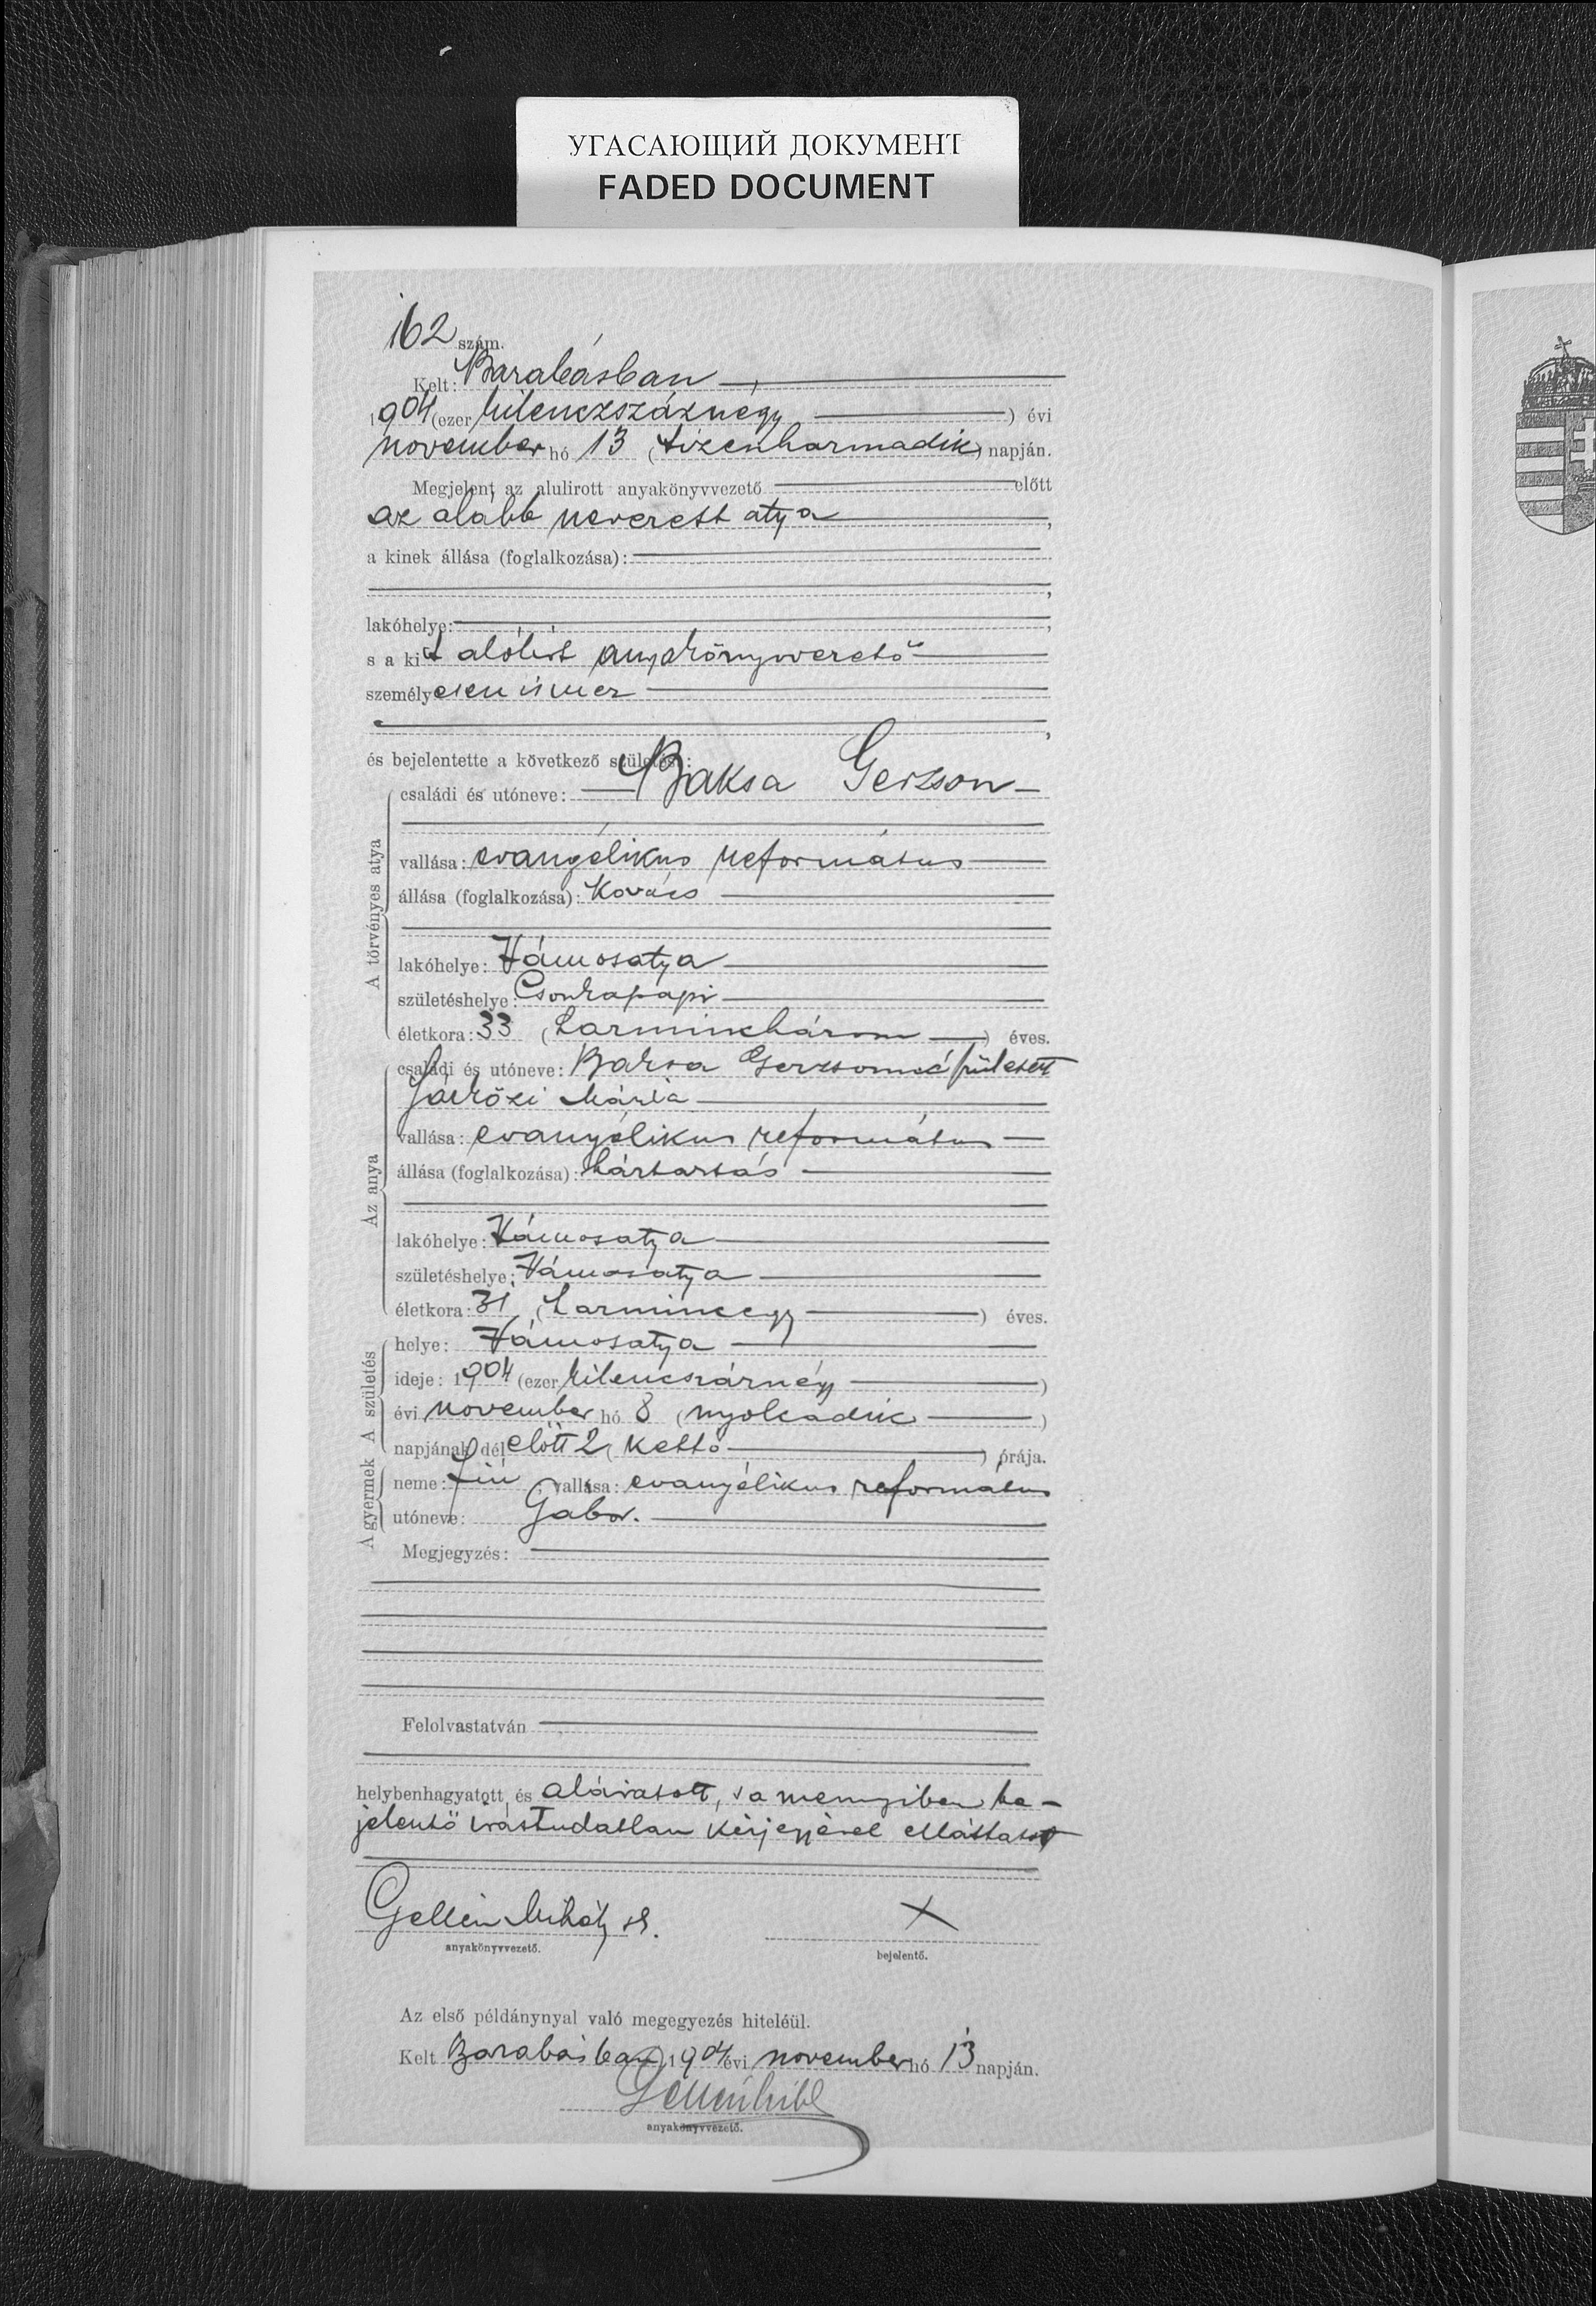 УГАСАЮЩИЙ ДОКУМЕНТ
FADED DOCUMENT
162 szám.
Kelt: Barabásban
1904 (ezer kilenczszáznégy) évi
november hó 13 (tizenharmadik) napján.
Megjelent az alulirott anyakönyvvezető előtt
az alább nevezett atya,
a kinek állása (foglalkozása):
lakóhelye:
s a kit alólirt anyakönyvvezető
személyesen ismer
és bejelentette a következő születést:
A törvényes atya
családi és utóneve: Baksa Gerzson
vallása: evangélikus református
állása (foglalkozása): Kovács
lakóhelye: Vámosatya
születéshelye: Csonkapapi
életkora: 33 (harminchárom) éves.
Az anya
családi és utóneve: Baksa Gerzsonné született
Jakőzi Mária
vallása: evangélikus református
állása (foglalkozása): háztartás
lakóhelye: Vámosatya
születéshelye: Vámosatya
életkora: 31 (harmincegy) éves.
A születés
helye: Vámosatya
ideje: 1904 (ezer kilencszáznégy)
évi november hó 8 (nyolcadik)
napjának délelőtt 2 (kettő) órája.
A gyermek
neme: fiú vallása: evangélikus református
utóneve: Gabor.
Megjegyzés:
Felolvastatván
helybenhagyatott és aláiratott, s a mennyiben be-
jelentő irástudatlan kézjegyével elláttatott
Gellén Mihály sk.
anyakönyvvezető.
X
bejelentő.
Az első példánynyal való megegyezés hiteléül.
Kelt Barabásban 1904 évi november hó 13 napján.
anyakönyvvezető.